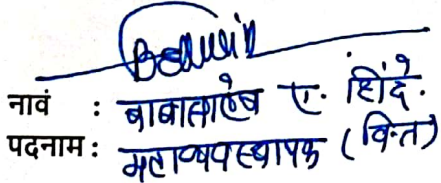 नावं : बाबासाहेब ए. शिंदे.
पदनाम : महाव्यवस्थापक (वित्त)